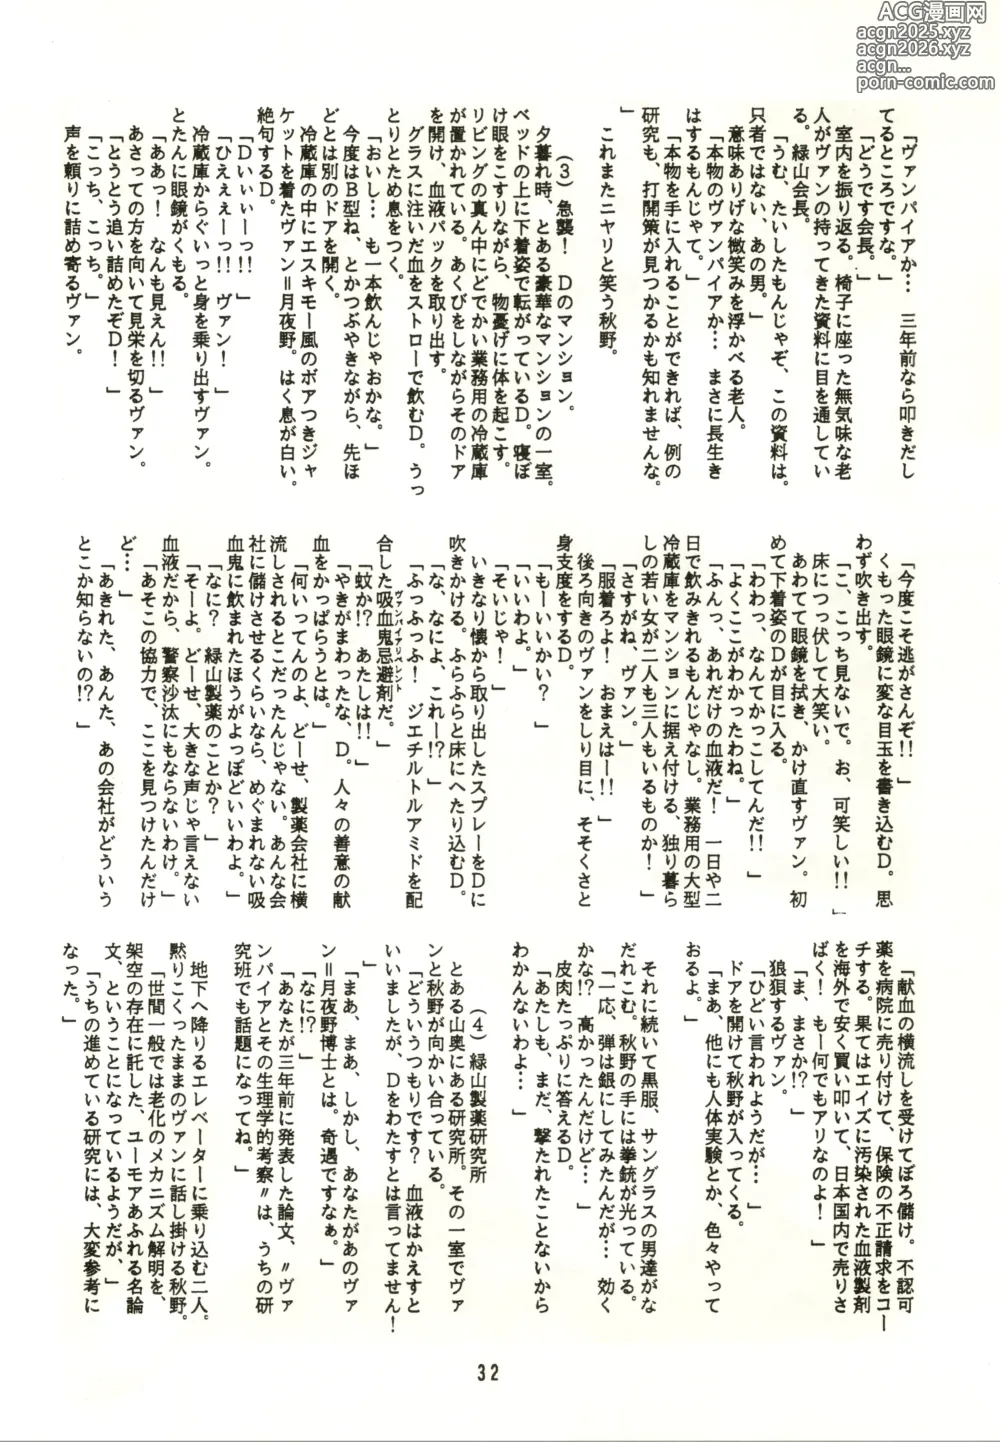 ACG漫画网
acgn2025.xyz
acgn2026.xyz
acgn...
porn-comic.com
「ヴァンパイアか… 三年前なら叩きだし
てるところですな。」
「どうです会長。」
室内を振り返る。椅子に座った無気味な老
人がヴァンの持ってきた資料に目を通してい
る。緑山会長。
「うむ、たいしたもんじゃぞ、この資料は。
只者ではない、あの男。」
意味ありげな微笑みを浮かべる老人。
「本物のヴァンパイアか… まさに長生き
はするもんじゃて。」
「本物を手に入れることができれば、例の
研究も、打開策が見つかるかも知れませんな。
」
これまたニヤリと笑う秋野。
(3)急襲! Dのマンション。
夕暮れ時、とある豪華なマンションの一室。
ベッドの上に下着姿で転がっているD。寝ぼ
け眼をこすりながら、物憂げに体を起こす。
リビングの真ん中にどでかい業務用の冷蔵庫
が置かれている。あくびをしながらそのドア
を開け、血液パックを取り出す。
グラスに注いだ血をストローで飲むD。うっ
とりとため息をつく。
「おいし… も一本飲んじゃおかな。」
今度はB型ね、とかつぶやきながら、先ほ
どとは別のドアを開く。
冷蔵庫の中にエスキモー風のボアつきジャ
ケットを着たヴァン=月夜野。はく息が白い。
絶句するD。
「Dいぃぃーっ!!」
「ひえぇぇーっ!! ヴァン!」
冷蔵庫からぐいっと身を乗り出すヴァン。
とたんに眼鏡がくもる。
「ああっ! なんも見えん!!」
あさっての方を向いて見栄を切るヴァン。
「とうとう追い詰めたぞD!」
「こっち、こっち。」
声を頼りに詰め寄るヴァン。
「今度こそ逃がさんぞ!!」
くもった眼鏡に変な目玉を書き込むD。思
わず吹き出す。
「こ、こっち見ないで。お、可笑しい!!」
床につっ伏して大笑い。
あわてて眼鏡を拭き、かけ直すヴァン。初
めて下着姿のDが目に入る。
「わわっ、なんてかっこしてんだ!!」
「よくここがわかったわね。」
「ふんっ、あれだけの血液だ! 一日や二
日で飲みきれるもんじゃなし。業務用の大型
冷蔵庫をマンションに据え付ける、独り暮ら
しの若い女が二人も三人もいるものか!」
「さすがね、ヴァン。」
「服着ろよ! おまえはー!!」
後ろ向きのヴァンをしり目に、そそくさと
身支度をするD。
「もーいいかい?」
「いいわよ。」
「そいじゃ!」
いきなり懐から取り出したスプレーをDに
吹きかける。ふらふらと床にへたり込むD。
「な、なによ、これー!?」
「ふっふっふ! ジエチルトルアミドを配
合した吸血鬼忌避剤だ。」
ヴァンパイアリペレント
「蚊か!? あたしは!!」
「やきがまわったな、D。人々の善意の献
血をかっぱらうとは。」
「何いってんのよ、どーせ、製薬会社に横
流しされるとこだったんじゃない。あんな会
社に儲けさせるくらいなら、めぐまれない吸
血鬼に飲まれたほうがよっぽどいいわよ。」
「なに? 緑山製薬のことか?」
「そーよ。どーせ、大きな声じゃ言えない
血液だから、警察沙汰にもならないわけ。」
「あそこの協力で、ここを見つけたんだけ
ど…」
「あきれた、あんた、あの会社がどういう
とこか知らないの!?」
「献血の横流しを受けてぼろ儲け。不認可
薬を病院に売り付けて、保険の不正請求をコー
チする。果てはエイズに汚染された血液製剤
を海外で安く買い叩いて、日本国内で売りさ
ばく! もー何でもアリなのよ!」
「ま、まさか!?」
狼狽するヴァン。
「ひどい言われようだが…」
ドアを開けて秋野が入ってくる。
「まあ、他にも人体実験とか、色々やって
おるよ。」
それに続いて黒服、サングラスの男達がな
だれこむ。秋野の手には拳銃が光っている。
「一応、弾は銀にしてみたんだが… 効く
かな!? 高かったんだけど…」
皮肉たっぷりに答えるD。
「あたしも、まだ、撃たれたことないから
わかんないわよ…」
(4)緑山製薬研究所
とある山奥にある研究所。その一室でヴァ
ンと秋野が向かい合っている。
「どういうつもりです? 血液はかえすと
いいましたが、Dをわたすとは言ってません!
」
「まあ、まあ、しかし、あなたがあのヴァ
ン=月夜野博士とは。奇遇ですなぁ。」
「なに!?」
「あなたが三年前に発表した論文、〃ヴァ
ンパイアとその生理学的考察〃は、うちの研
究班でも話題になってね。」
地下へ降りるエレベーターに乗り込む二人。
黙りこくったままのヴァンに話し掛ける秋野。
「世間一般では老化のメカニズム解明を、
架空の存在に託した、ユーモアあふれる名論
文、ということになっているようだが、」
「うちの進めている研究には、大変参考に
なった。」
32